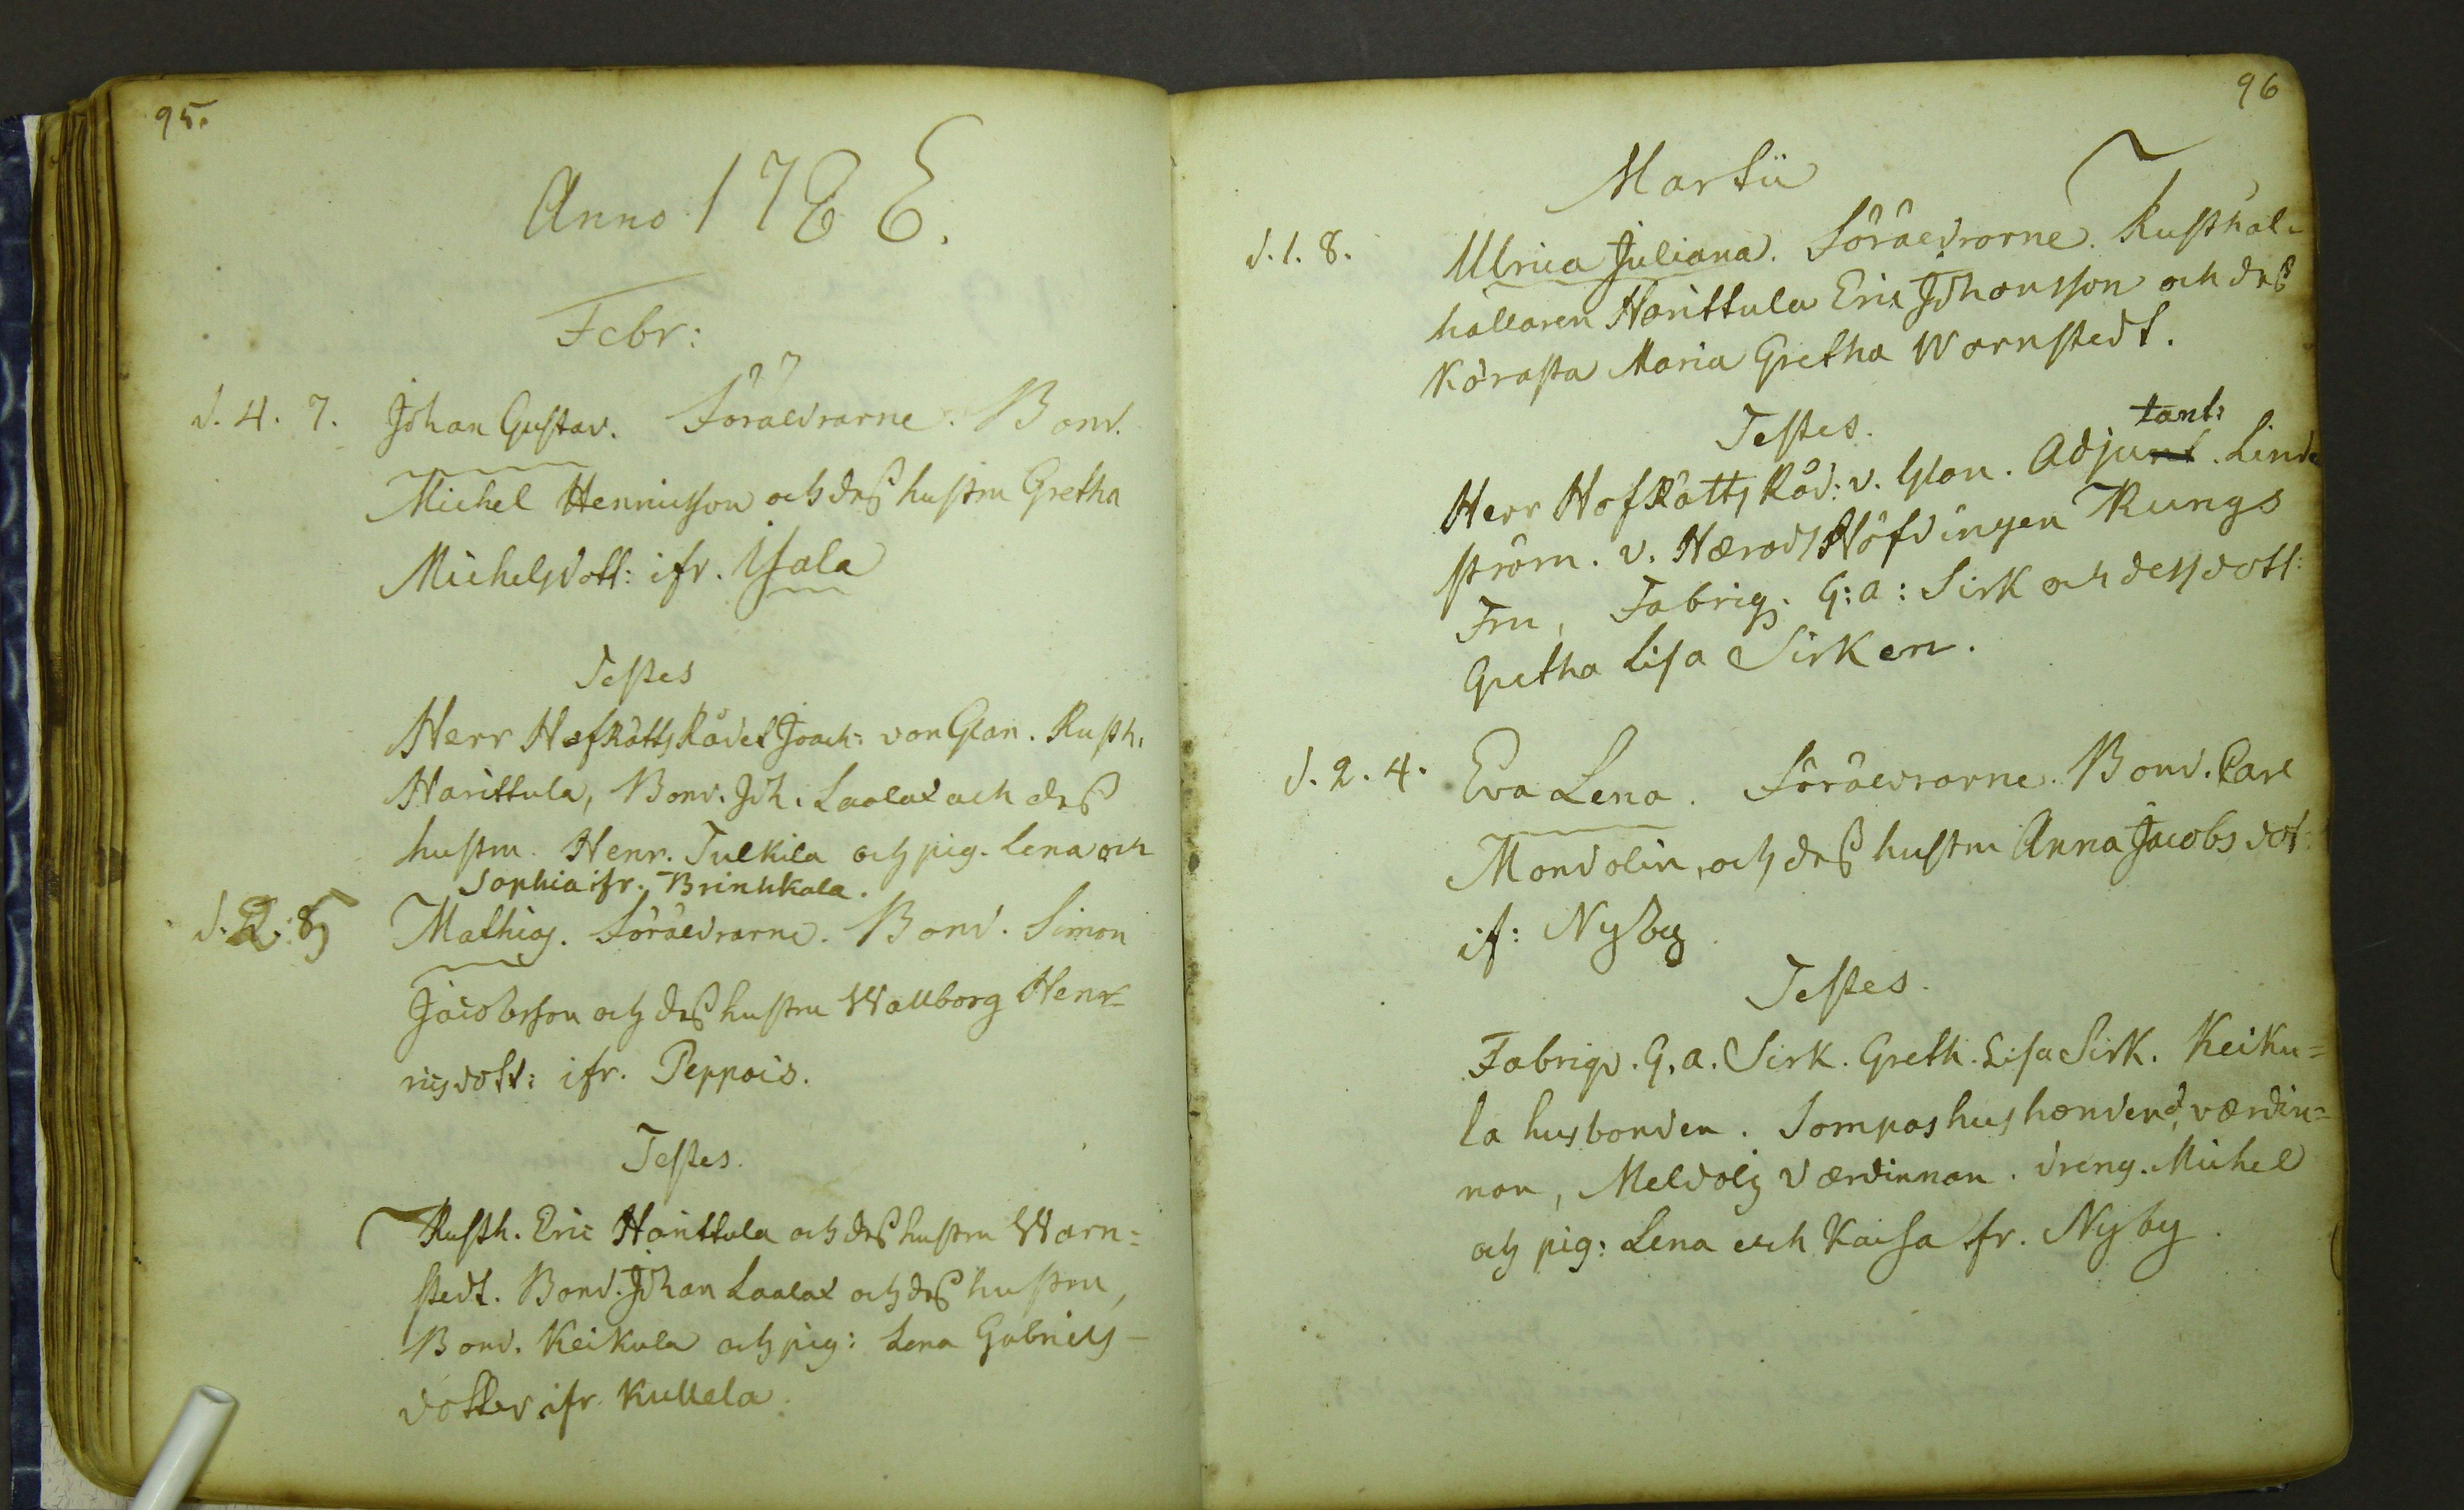 95.
Anno 1788.
Febr:
d. 4. 7. Johan Gustav. Föräldrarne. Bond.
Michel Hennricsson och dess hustru Gretha
Michelsdott: ifr. Isala
Testes
Herr HofRätts Rådet Joach: von Glan. Rusth.
Harittula, Bond. Joh. Laalax och dess
hustru. Henr. Tulkila och pig. Lena och
Sophia ifr. Brinkkala.
Mathias. Föräldrarne. Bond. Simon
Jacobsson och dess hustru Wallborg Hen=
ricsdott: ifr. Peppois.
Testes.
Rusth. Eric Harittula och dess hustru Warn=
stedt. Bond. Johan Laalax och dess hustru,
Bond. Keikula och pig: Lena Gabriels-
dotter ifr. Kullela.
96
Martii
d. 1. 8. Ulrica Juliana. Föräldrarne. Rusthål-
hållaren Harittula Eric Johansson och dess
Kärasta Maria Gretha Warnstedt.
Testes.
tant:
Herr HofRätts Råd: v. Glan. Adjunt. Linde
ström. v. HäradsHöfdingen Rungs
Fru, Fabriq. G: A: Sirk och dess dott:
Gretha Lisa Sirken.
d. 2. 4. Eva Lena. Föräldrarne. Bond. Carl
Mondolin, och dess hustru Anna Jacobs dot:
if: Nyby
Testes.
Fabriqv. G. A. Sirk. Greth. Lisa Sirk. Keiku=
la husbonden. Sompas husbonden, värdin=
nan, Meldola Värdinnan. dreng. Michel
och pig: Lena och Kaisa fr. Nyby.